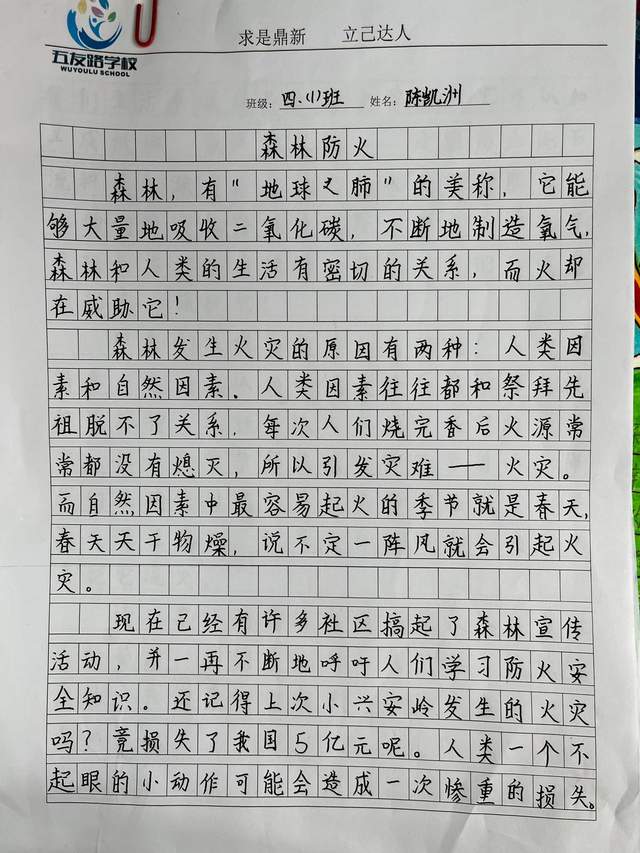 五友路学校
WUYOULU SCHOOL
求是鼎新 立己达人
班级：四.(1)班 姓名：陈凯洲
森林防火
森林，有"地球之肺"的美称，它能
够大量地吸收二氧化碳，不断地制造氧气，
森林和人类的生活有密切的关系，而火却
在威胁它！
森林发生火灾的原因有两种：人类因
素和自然因素．人类因素往往都和祭拜先
祖脱不了关系．每次人们烧完香后火源常
常都没有熄灭，所以引发灾难——火灾。
而自然因素中最容易起火的季节就是春天，
春天天干物燥，说不定一阵风就会引起火
灾。
现在已经有许多社区搞起了森林宣传
活动，并一再不断地呼吁人们学习防火安
全知识。还记得上次小兴安岭发生的火灾
吗？竟损失了我国5亿元呢。人类一个不
起眼的小动作可能会造成一次惨重的损失。